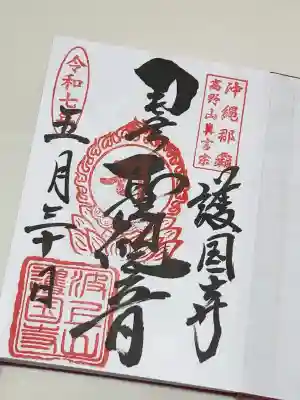 沖縄那覇
高野山真言宗
護国寺
聖観音
令和七
五月三十日
波上山
護国寺